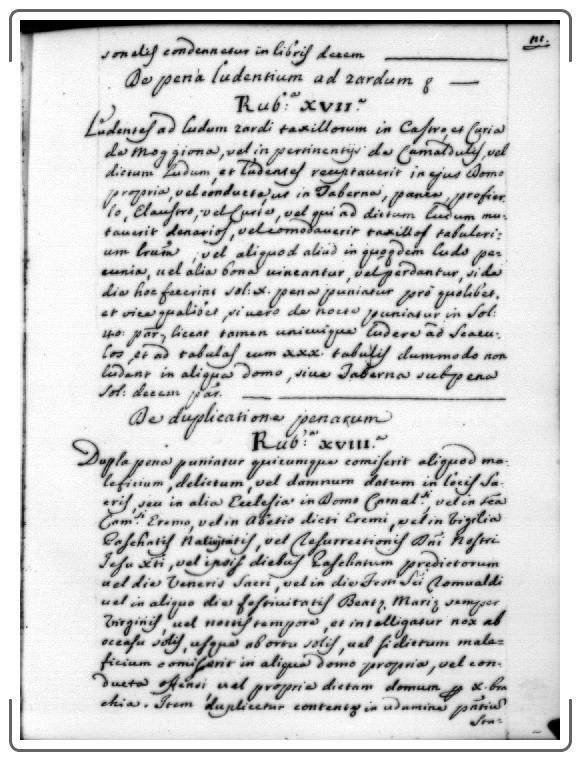 m.
sonalis condennetur in libris decem
De pena ludentium ad zardum
Rub.ᵃ XVII.ᵃ
Ludentes ad ludum zardi taxillorum in Castro, et Curia
de Moggiona, vel in pertinentijs de Camaldulis, vel
dictum Ludum, et ludentes receptaverit in ejus Domo
propria, vel conducta, ut in Taberna, panca, profier
lo, Claustro, vel Curia, vel qui ad dictum ludum mu-
tuaverit denarios, vel comodaverit taxillos tabuleri-
um, vel aliquod aliud in quogdem ludo pe-
cunia, vel alia bona vincantur, vel perdantur, si de
die hoc fecerint sol: x. pena puniatur prō quolibet,
et vice qualibet, si vero de nocte puniatur in Sol:
licent tamen unicuique ludere ad Scacu-
los, et ad tabulas cum xxx. tabulis dummodo non
ludent in aliqua domo, sive Taberna sub pena
sol: decem par.
De duplicatione penarum
Rub.ᵃ XVIII.ᵃ
Dupla pena puniatur quicumque comiserit aliquod ma-
leficium, delictum, vel damnum datum in locis Sa-
cris, seu in alia Ecclesia in Domo Camal.ⁱ, vel in
Cam.ⁱ Eremo, vel in Abetio dicti Eremi, vel in Vigilia
Paschatis Nativitatis, vel Resurrectionis Dn̄i Nostri
Jesu Xti, vel ipsis diebus Paschatum predictorum
vel die Veneris Sacri, vel in die Festi Sc̄i Romualdi
vel in aliquo die festivitatis Beatę Marię semper
Virginis, vel noctis tempore, et intelligatur nox ab
occasu solis, usque ab ortu solis, vel si dictum male-
ficium comiserit in aliqua domo propria, vel con-
ducta offensi vel propria dictam domum p x. bra
chia. Item duplicetur contentę in udamine
Sta-